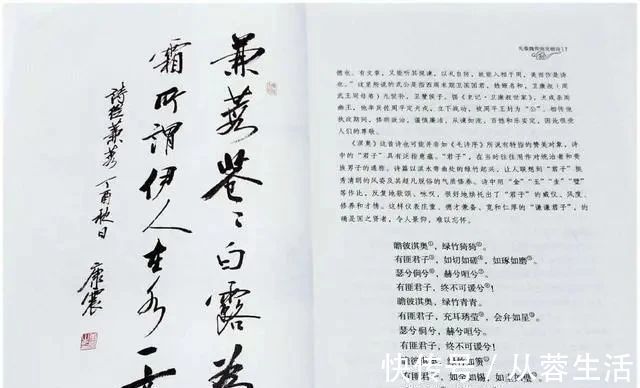 蒹葭苍〻白露為
霜所謂伊人在水一方
詩經蒹葭 丁酉秋日
康震
先秦魏晋南北朝诗 17
德也。有文章，又能听其规谏，以礼自防，故能入相于周，美而作是诗
也。”这里所说的武公是指西周末期卫国国君，姓姬名和，卫康叔（周
武王同母弟）九世孙，卫釐侯子。据《史记·卫康叔世家》，犬戎杀周
幽王，他率兵佐周平定犬戎，立下战功，被周平王封为“公”。相传他
执政期间，修明政治，谨慎廉洁，从谏如流，百姓和乐实灾，因此很受
人们的尊敬。
《淇奥》这首诗可能并非如《毛诗序》所说有特指的赞美对象，诗
中的“君子”具有泛指意蕴。“君子”，在当时往往用作对统治者和贵
族男子的通称。诗篇以淇水弯曲处的绿竹起兴，让人联想到“君子”挺
秀清朗的风姿及其超凡脱俗的气质修养。诗中用“金”“玉”“圭”“璧”
等作比，反复地歌颂、咏叹，很好地烘托出了“君子”的威仪、风度、
修养和才情。这样仪表庄重、德才兼备、宽和仁厚的“谦谦君子”，的
确是国之贤者，令人景仰，难以忘怀。
瞻彼淇奥①，绿竹猗猗②。
有匪君子③，如切如磋④，如琢如磨⑤。
瑟兮僴兮⑥，赫兮咺兮⑦。
有匪君子，终不可谖兮⑧！
瞻彼淇奥，绿竹青青。
有匪君子，充耳琇莹⑨，会弁如星⑩。
瑟兮僴兮，赫兮咺兮。
有匪君子，终不可谖兮！
瞻彼淇奥，绿竹如箦
有匪君子，如金如锡，如圭如璧
快传号/从蓉生活